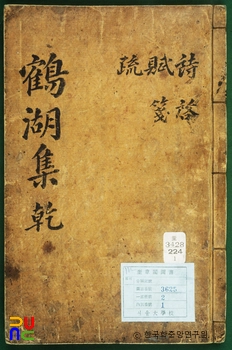 鶴湖集 乾
詩 賦 疏
啓 箋
古
3428
224
1
3625
2
1
한국학중앙연구원